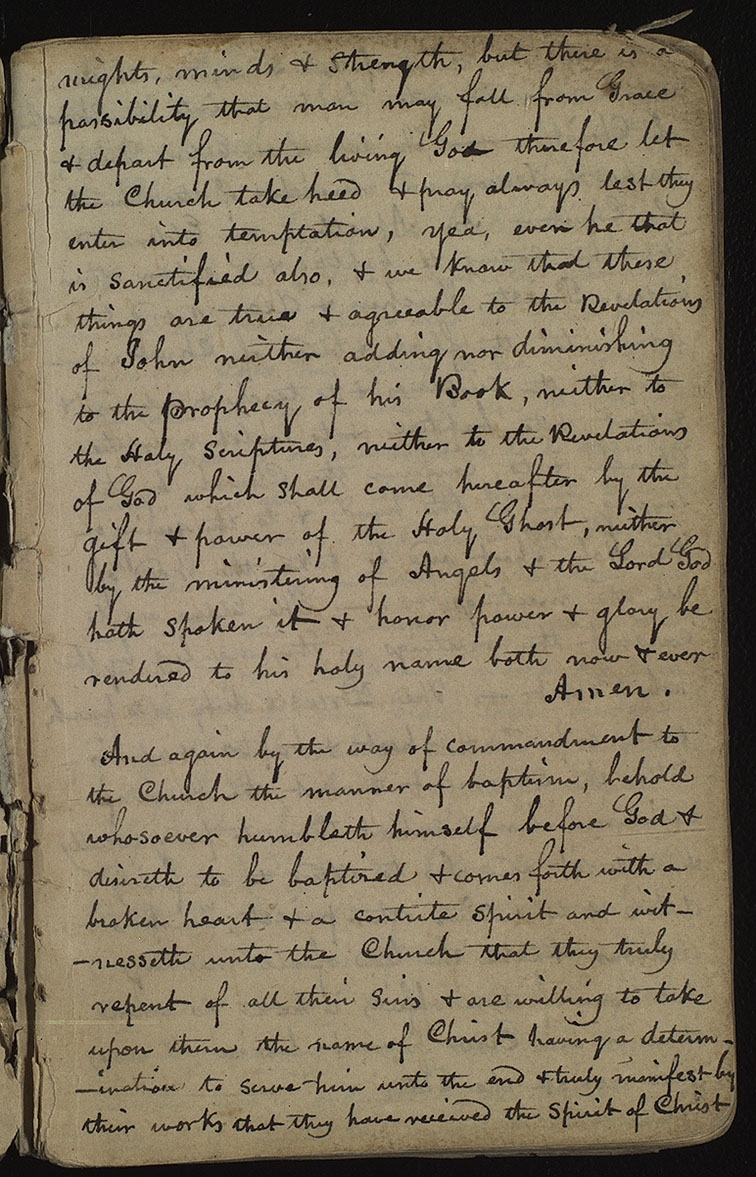 mights, minds & strength, but there is a
possibility that man may fall from Grace
& depart from the living God therefore let
the Church take heed & pray always lest they
enter into temptation, yea, even he that
is sanctified also, & we know that these
things are true & agreeable to the Revelations
of John neither adding nor diminishing
to the prophecy of his Book, neither to
the Holy Scriptures, neither to the Revelations
of God which shall come hereafter by the
gift & power of the Holy Ghost, neither
by the ministering of Angels & the Lord God
hath spoken it & honor power & glory be
rendered to his holy name both now & ever
Amen.
And again by the way of commandment to
the Church the manner of baptism, behold
whosoever humbleth himself before God &
desireth to be baptized & comes forth with a
broken heart & a contrite spirit and wit-
-nesseth unto the Church that they truly
repent of all their sins & are willing to take
upon them the name of Christ having a determ-
-ination to serve him unto the end & truly manifest by
their works that they have received the Spirit of Christ